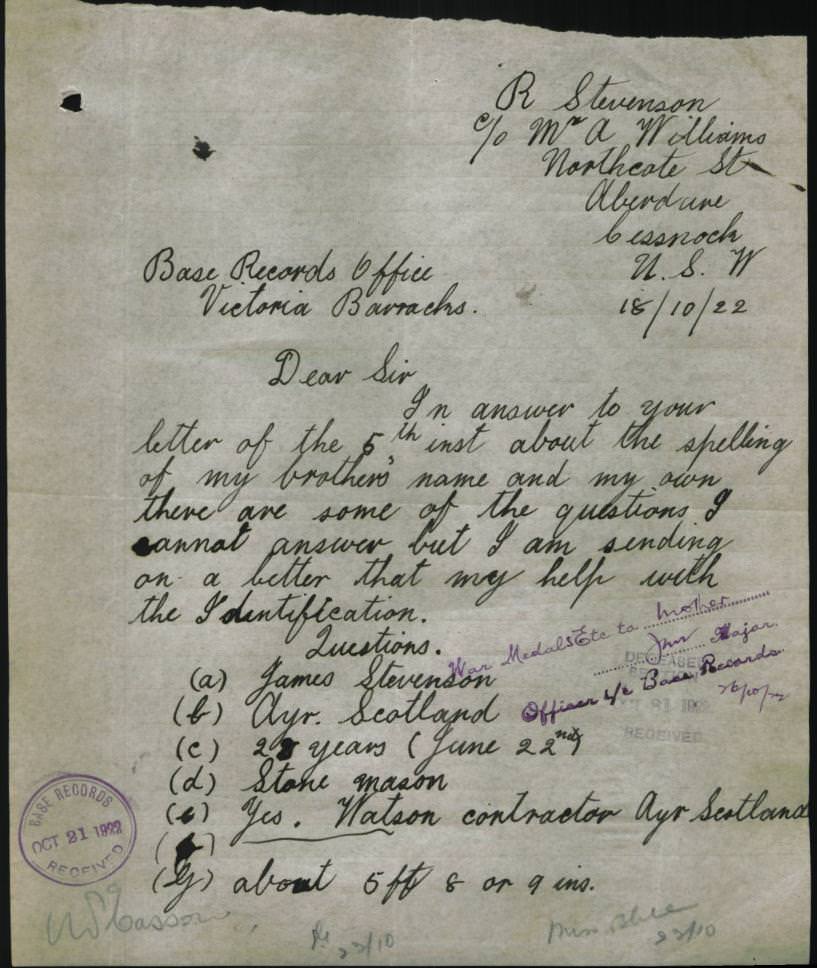 R Stevenson
c/o Mr A Williams
Northcote St
Aberdare
Cessnock
N. S. W
18/10/22
Base Records Office
Victoria Barracks.
Dear Sir
In answer to your
letter of the 5th inst about the spelling
of my brothers' name and my own
there are some of the questions I
cannot answer but I am sending
on a better that my help with
the Identification.
Questions.
War Medals Etc to mother
Major.
Officer i/c Base Records
26/10/22
DECEASED
OCT 31 1922
RECEIVED
(a) James Stevenson
(b) Ayr. Scotland
(c) years (June 22nd)
(d) Stone mason
(e) Yes. Watson contractor Ayr Scotland
(f)
(g) about 5 ft 8 or 9 ins.
BASE RECORDS
OCT 21 1922
RECEIVED
23/10
23/10